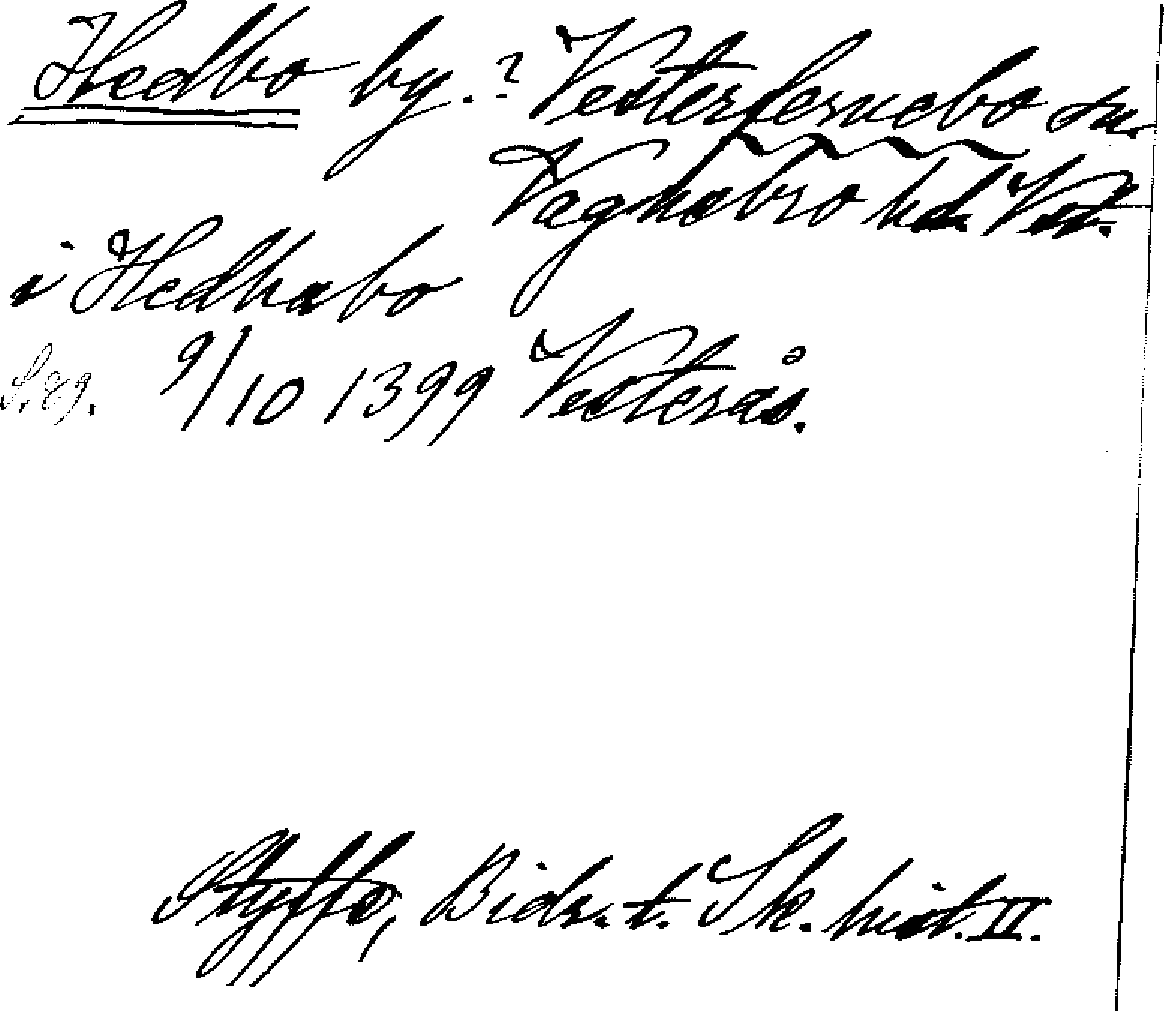 Hedbo by. ? Vesterfernebo sn.
Vagnsbro hd. Vst.
i Hedhabo
S. 89. 9/10 1399 Vesterås.
Styffe, Bidr. t. Sk. hist. II.